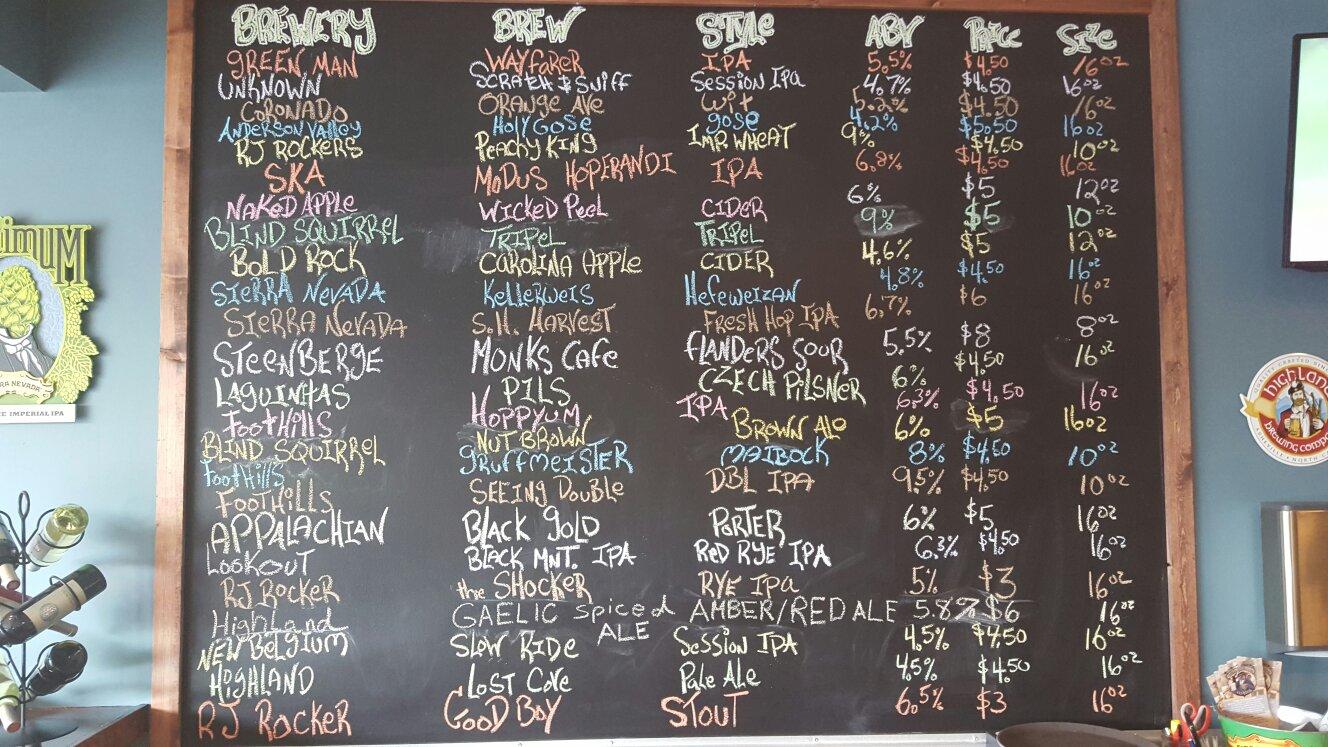 BREWERY BREW STYLE ABV PRICE SIZE
GREEN MAN WAYFARER IPA 5.5% $4.50 16oz
UNKNOWN SCRATCH & SNIFF SESSION IPA 4.7% $4.50 16oz
CORONADO ORANGE AVE WIT 5.2% $4.50 16oz
ANDERSON VALLEY HOLY GOSE GOSE 4.2% $5.50 16oz
RJ ROCKERS PEACHY KING IMP. WHEAT 9% $4.50 10oz
SKA MODUS HOPERANDI IPA 6.8% $4.50 16oz
NAKED APPLE WICKED PEEL CIDER 6% $5 12oz
BLIND SQUIRREL TRIPEL TRIPEL 9% $5 10oz
BOLD ROCK CAROLINA APPLE CIDER 4.6% $5 12oz
SIERRA NEVADA KELLERWEIS HEFEWEIZAN 4.8% $4.50 16oz
SIERRA NEVADA S.H. HARVEST FRESH HOP IPA 6.7% $6 16oz
STEENBERGE MONKS CAFE FLANDERS SOUR 5.5% $8 8oz
LAGUINTAS PILS CZECH PILSNER 6% $4.50 16oz
FOOTHILLS HOPPYUM IPA 6.3% $4.50 16oz
BLIND SQUIRREL NUT BROWN BROWN ALE 6% $5 16oz
FOOTHILLS GRUFFMEISTER MAIBOCK 8% $4.50 10oz
FOOTHILLS SEEING DOUBLE DBL IPA 9.5% $4.50 10oz
APPALACHIAN BLACK GOLD PORTER 6% $5 16oz
LOOKOUT BLACK MNT. IPA RED RYE IPA 6.3% $4.50 16oz
RJ ROCKER the SHOCKER RYE IPA 5% $3 16oz
HIGHLAND GAELIC SPICED ALE AMBER/RED ALE 5.8% $6 16oz
NEW BELGIUM SLOW RIDE SESSION IPA 4.5% $4.50 16oz
HIGHLAND LOST COVE PALE ALE 45% $4.50 16oz
RJ ROCKER GOOD BOY STOUT 6.5% $3 16oz
IMPERIAL IPA
highland
brewing